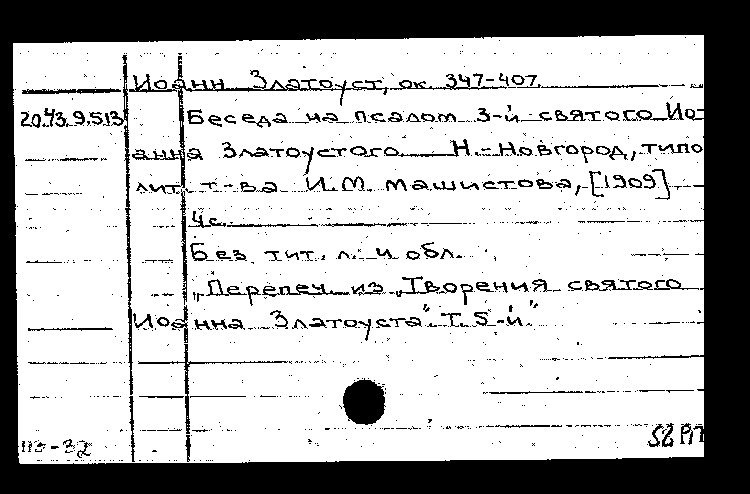 Иоанн Златоуст, ок. 347-407.
20.43.9.513 Беседа на псалом 3-й святого Ио-
анна Златоустого Н.-Новгород, типо
лит. т-ва И.М. Машистова, [1909]
4с.
Без тит. л. и обл.
„Перепеч. из „Творения святого
Иоанна Златоуста". Т. 5-й."
113-32